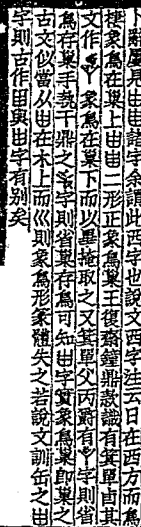 卜辭屢見諸字余謂此西字也說文西字注云日在西方而鳥
棲象鳥在巢上二形正象鳥巢王復齋鐘鼎款識有箕單卣其
文作象鳥在巢下而以畢掩取之又箕單父丙爵有字則省
鳥存巢手執干鼎之字則省巢存鳥可知甶字實象鳥巢即巢之
古文似當从甶在木上而巛則象鳥形篆體失之若說文訓缶之甶
字則古作與甶字有別矣